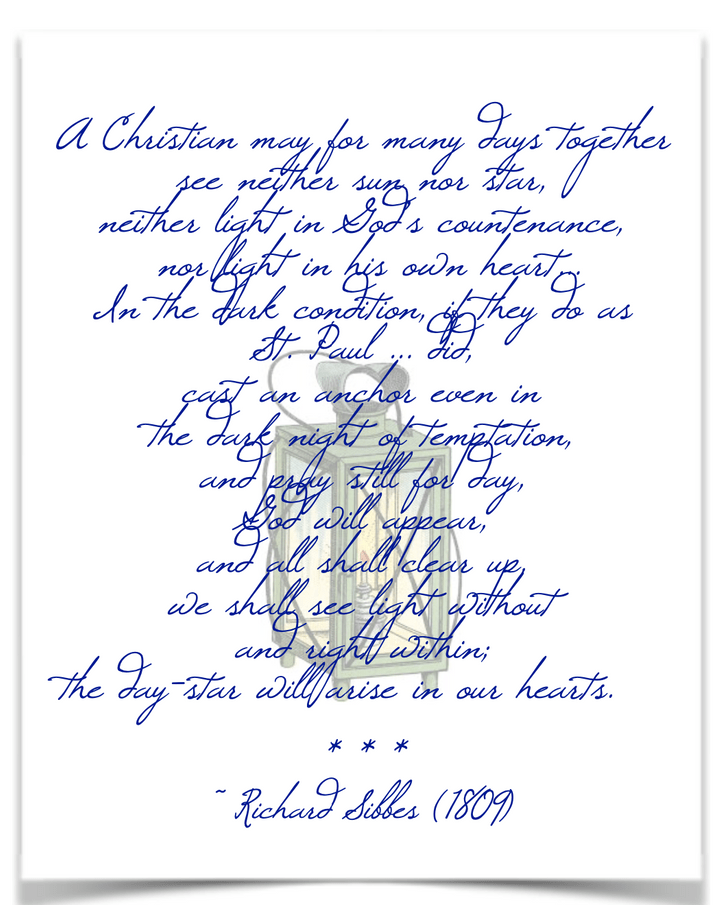 A Christian may for many days together
see neither sun nor star,
neither light in God's countenance,
nor light in his own heart...
In the dark condition, if they do as
St. Paul ... did,
cast an anchor even in
the dark night of temptation,
and pray still for day,
God will appear,
and all shall clear up,
we shall see light without
and right within;
the day-star will arise in our hearts.
* * *
~ Richard Sibbes (1809)